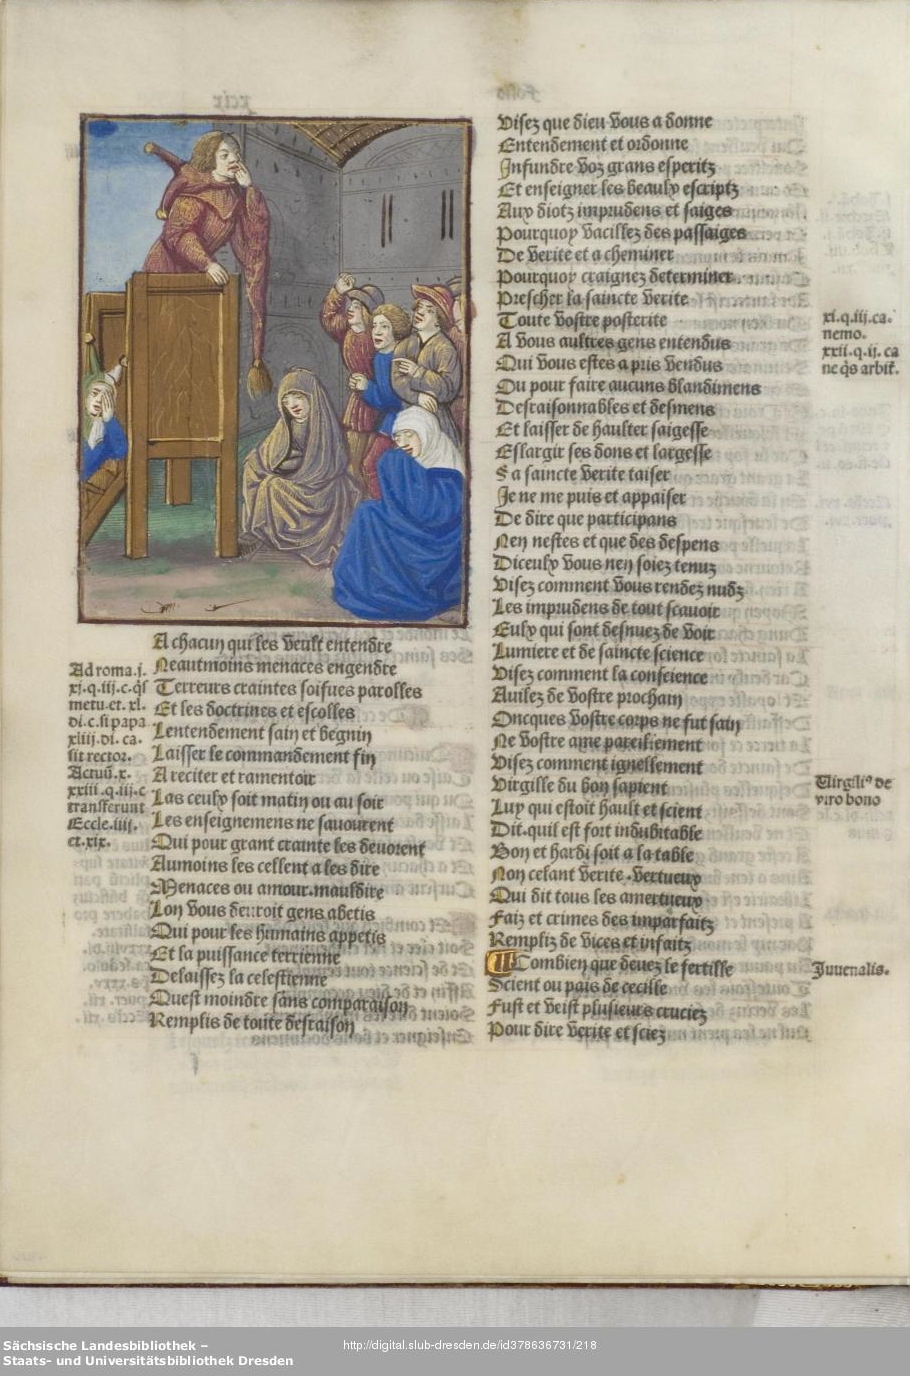 A chacun qui les veult entendre
Neautmoins menaces engendre
Terreurs craintes soifues parolles
Et les doctrines et escolles
Lentendement sain et begnin
Laisser le commandement fin
A reciter et ramentoir
Las ceulx soit matin ou au soir
Les enseignemens ne sauourent
Qui pour grant crainte les deuorent
Aumoins les cellent a les dire
Menaces ou amour.mauldire
Lon vous deuroit gens abetis
Qui pour les humains appetis
Et la puissance terrienne
Delaissez la celestienne
Quest moindre sans comparaison
Remplis de toute desraison
Ad roma.j.
xj.q.iij.c.q̄s
metu.et.xl.
di.c.si papa
xliij.di.ca.
sit rector.
Actuū.x.
xxiii.q.iij.c
transferunt
Eccle.iiij.
et.xix.
Visez que dieu vous a donne
Entendement et ordonne
Infundre voz grans esperitz
Et enseigner les beaulx escriptz
Aux diotz imprudens et saiges
Pourquoy vacillez des passaiges
De verite et a cheminer
Pourquoy craignez determiner
Prescher la saincte verite
Toute vostre posterite
A vous aultres gens entendus
Qui vous estes a pris vendus
Ou pour faire aucuns blandimens
Desraisonnables et desmens
Et laisser de haulter saigesse
Eslargir ses dons et largesse
Sa saincte verite taiser
Je ne me puis et appaiser
De dire que participans
Nen nestes et que des despens
Diceulx vous nen soiez tenuz
Visez comment vous rendez nudz
Les imprudens de tout scauoir
Eulx qui sont desnuez de voir
Lumiere et de saincte science
Visez comment la conscience
Auilez de vostre prochain
Oncques vostre corps ne fut sain
Ne vostre ame pareillement
Visez comment ignellement
Virgille du bon sapient
Luy qui estoit hault et scient
Dit.quil est fort indubitable
Bon et hardi soit a la table
Non celant verite.vertueux
Qui dit tous les amertueux
Faiz et crimes des imparfaitz
Rempliz de vices et infaitz
O Combien que deuez le fertille
Scient ou pais de cecille
Fust et veist plusieurs cruciez
Pour dire verite et sciez
xi.q.iij.ca.
nemo.
xxii.q.ij.ca
ne q̄s arbit̄.
Virgiliꝰ de
viro bono
Juuenalis.
Sächsische Landesbibliothek –
Staats- und Universitätsbibliothek Dresden
http://digital.slub-dresden.de/id378636731/218